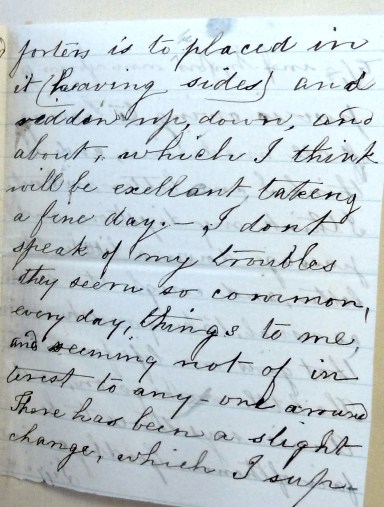 forters is to placed in
it (having sides) and
redden up, down, and
about, which I think
will be exellant, takeng
a fine day. — I dont
speak of my troubles
they seem so common,
every day, things to me,
and seeming not of in
terest to any - one around
There has been a slight
change, which I sup-